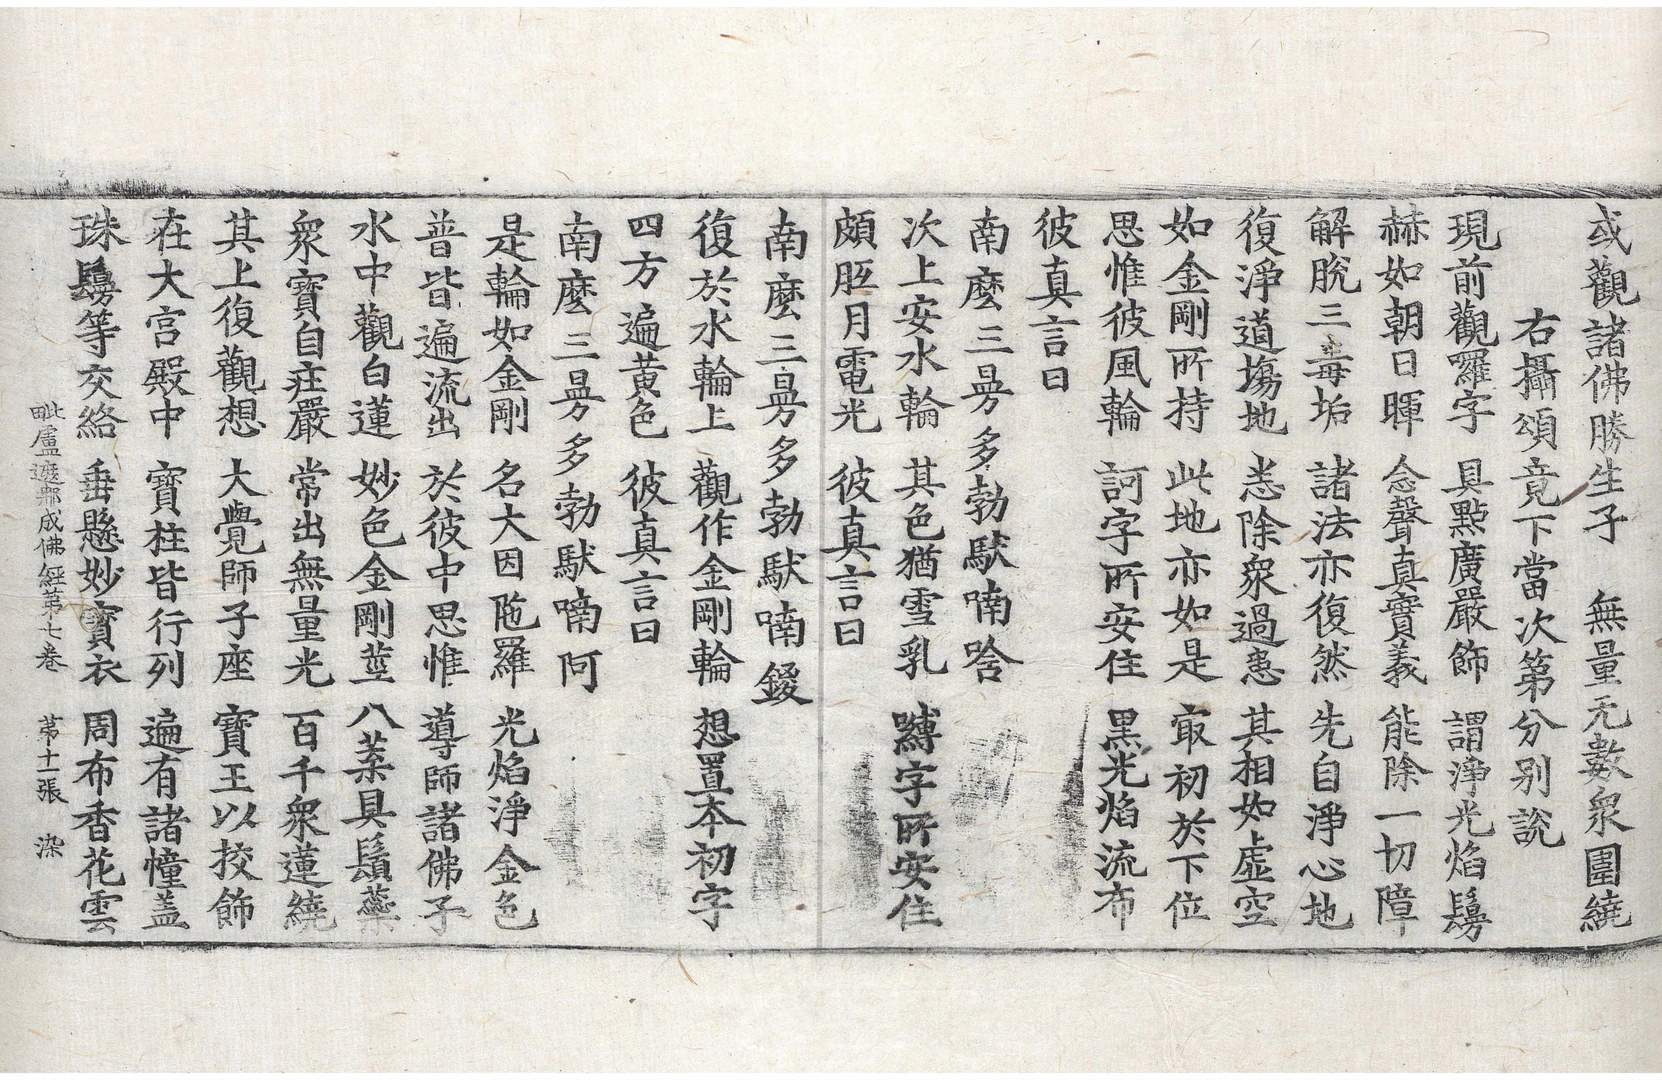 或觀諸佛勝生子　無量无數衆圍繞
右攝頌竟下當次第分別說
現前觀囉字　具點廣嚴飾　謂淨光焰鬘
赫如朝日暉　念聲真實義　能除一切障
解脫三毒垢　諸法亦復然　先自淨心地
復淨道塲地　悉除衆過患　其相如虛空
如金剛所持　此地亦如是　㝡初於下位
思惟彼風輪　訶字所安住　黑光焰流布
彼真言曰
南麼三曼多勃馱喃唅
次上安水輪　其色猶雪乳　嚩字所安住
頗胝月電光　彼真言曰
南麼三曼多勃馱喃鑁
復於水輪上　觀作金剛輪　想置本初字
四方遍黃色　彼真言曰
南麼三曼多勃馱喃阿
是輪如金剛　名大因陁羅　光焰淨金色
普皆遍流出　於彼中思惟　導師諸佛子
水中觀白蓮　妙色金剛莖　八葉具鬚蘂
衆寶自莊嚴　常出無量光　百千衆蓮繞
其上復觀想　大覺師子座　寶王以挍飾
在大宮殿中　寶柱皆行列　遍有諸幢蓋
珠鬘等交絡　垂懸妙寶衣　周布香花雲
毗盧遮那成佛經第七卷　第十一張　染